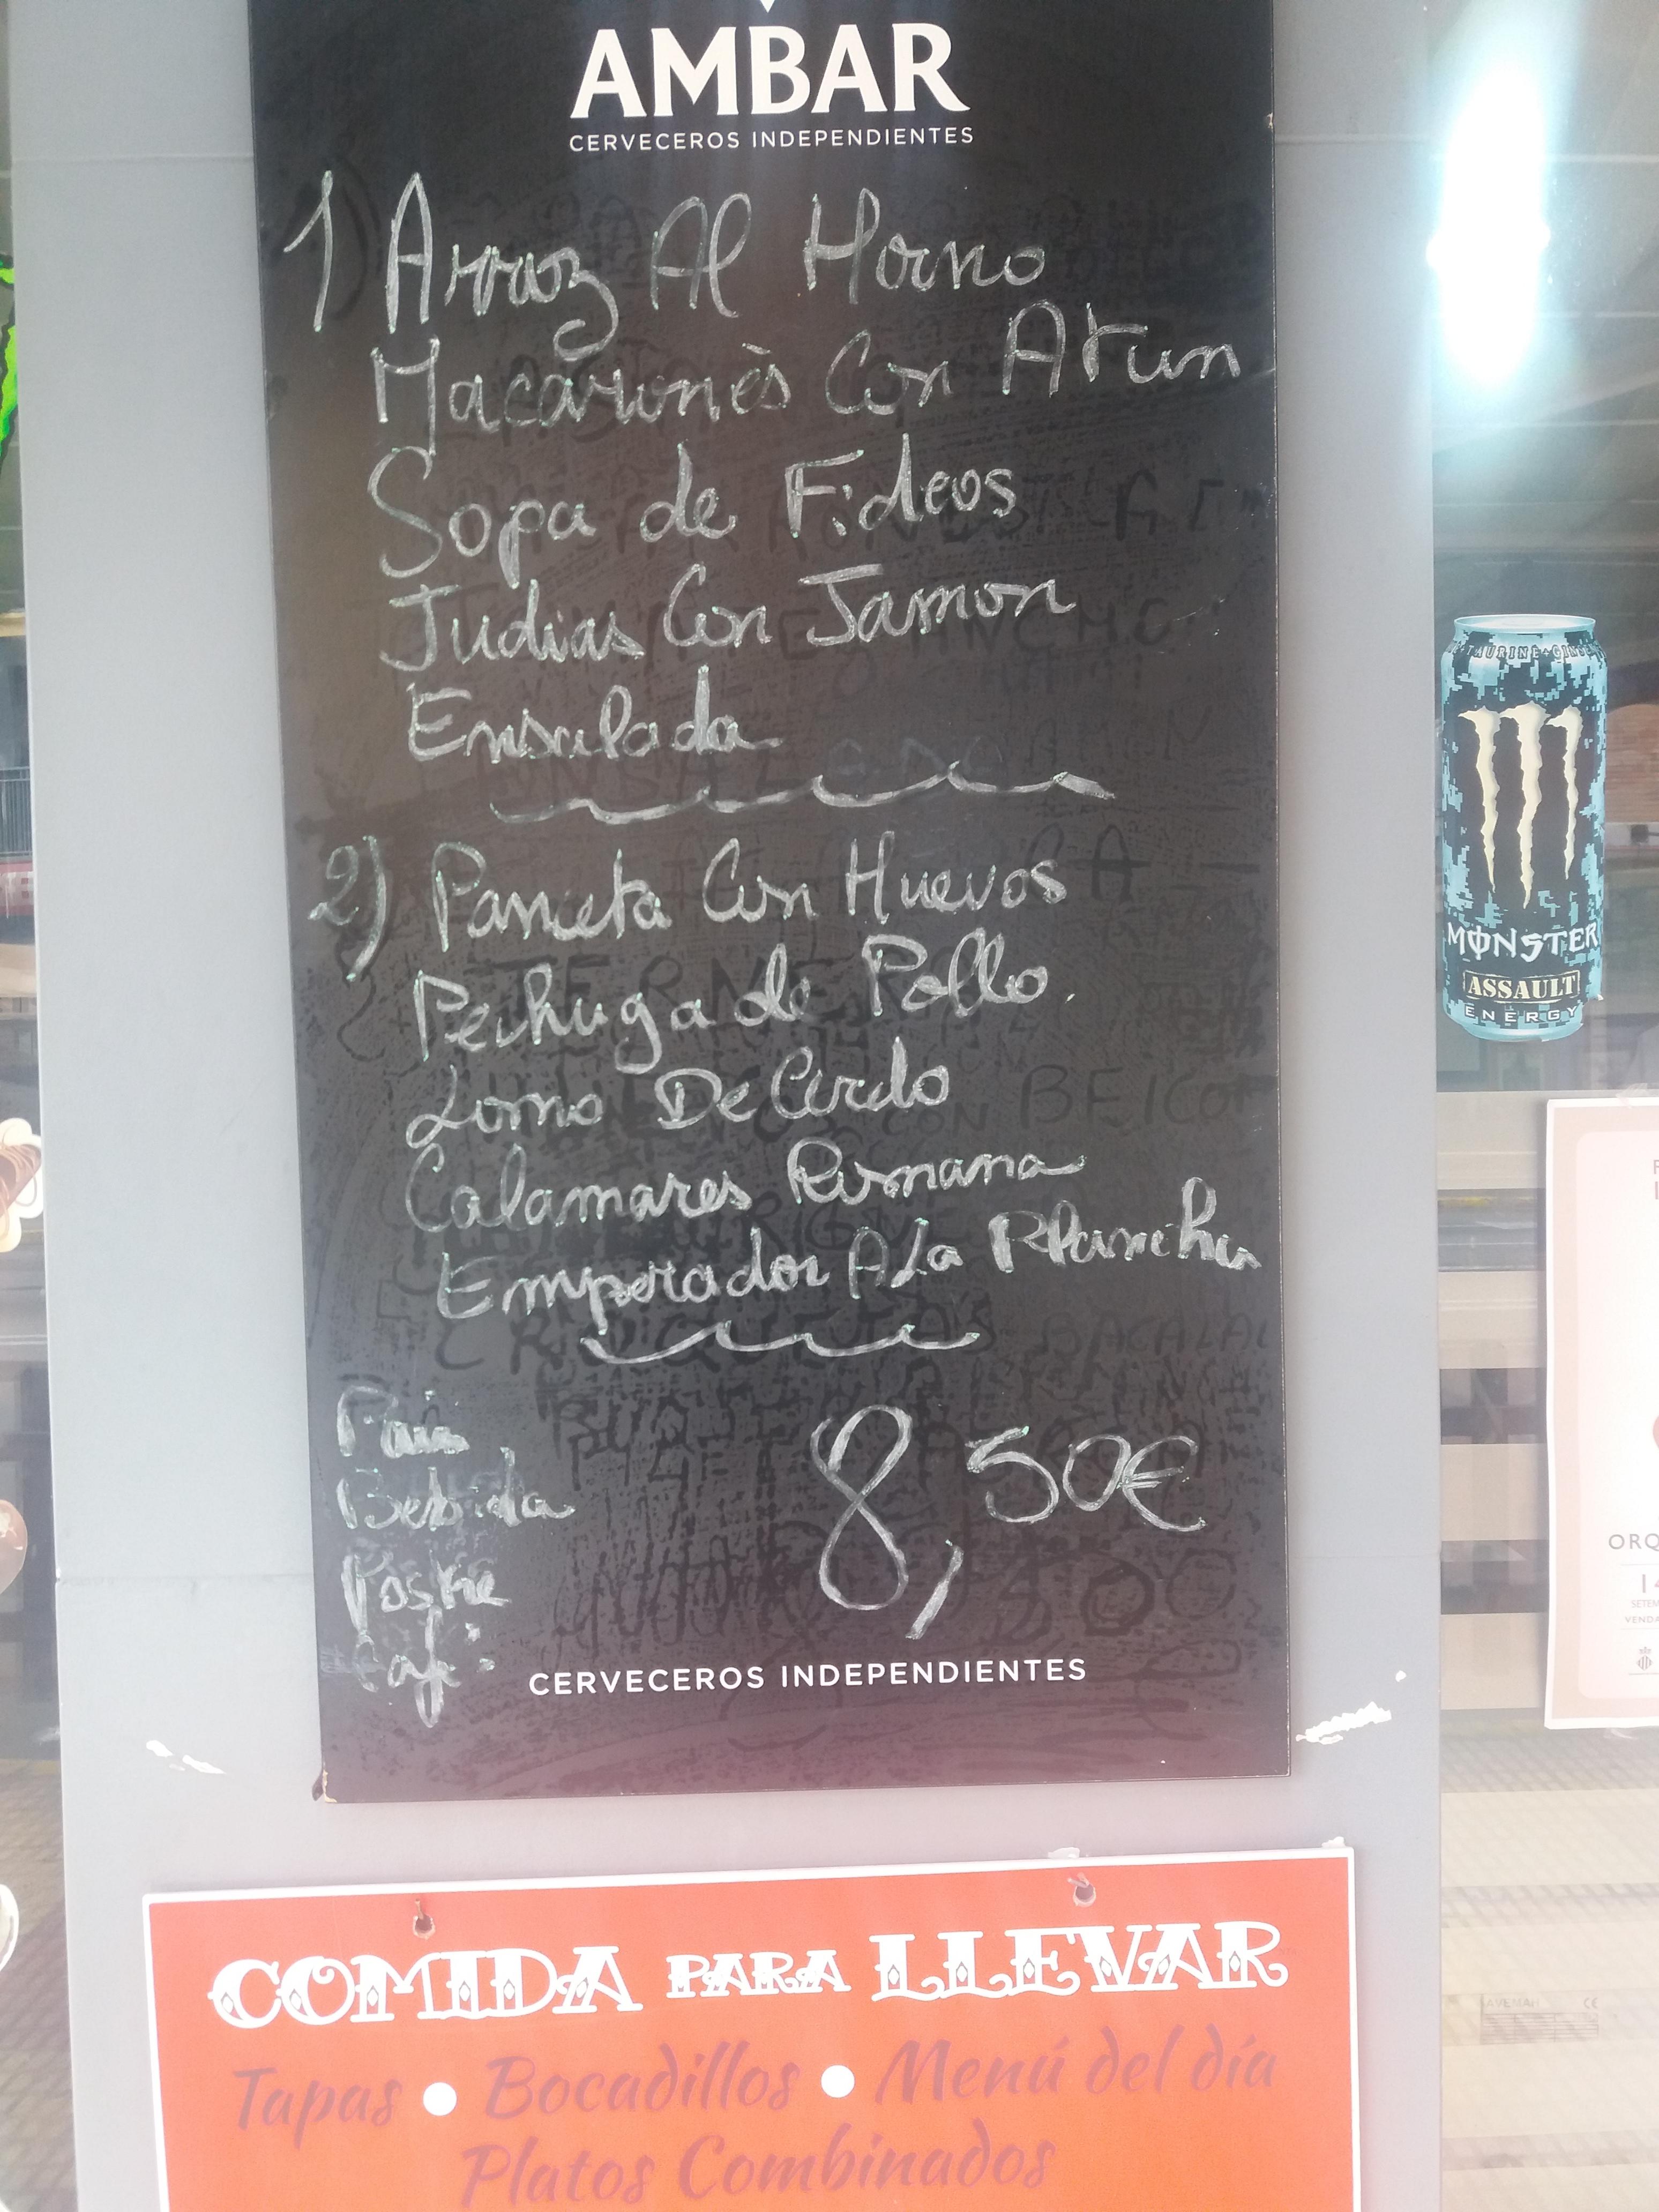 AMBAR
CERVECEROS INDEPENDIENTES
1) Arroz Al Horno
Macaronès Con Atun
Sopa de Fideos
Judias Con Jamon
Ensalada
2) Panceta Con Huevos
Pechuga de Pollo.
Lomo De Cerdo
Calamares Romana
Emperador A La Plancha
Pan
Bebida
Postre
Cafe
8,50€
CERVECEROS INDEPENDIENTES
TAURINE+GINSE
MONSTER
ASSAULT
ENERGY
ORQ
14
SETEM
VENDA
COMIDA PARA LLEVAR
Tapas • Bocadillos • Menú del día
Platos Combinados